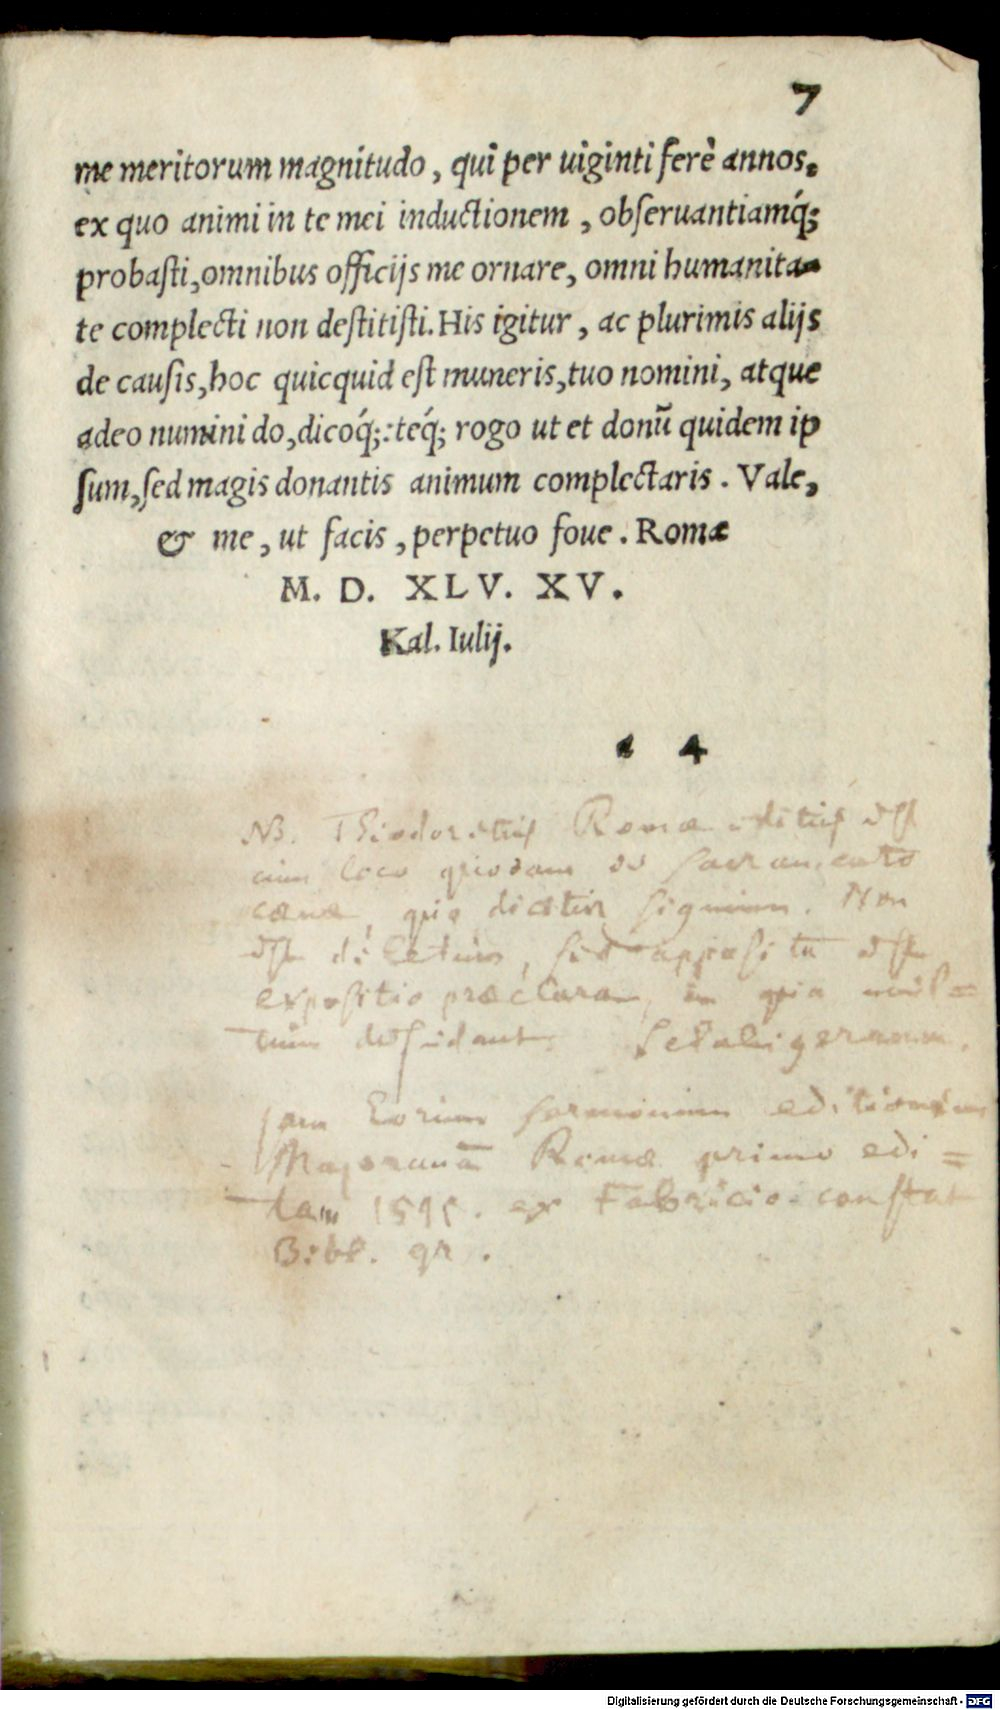 7
me meritorum magnitudo, qui per uiginti ferè annos,
ex quo animi in te mei inductionem, obſeruantiamq́;
probaſti, omnibus officijs me ornare, omni humanita-
te complecti non deſtitiſti. His igitur, ac plurimis alijs
de cauſis, hoc quicquid eſt muneris, tuo nomini, atque
adeo numini do, dicoq́;: teq́; rogo ut et donū quidem ip
ſum, ſed magis donantis animum complectaris. Vale,
& me, ut facis, perpetuo foue. Romæ
M. D. XLV. XV.
Kal. Iulij.
4
NB. Theodoretus Romæ editus est
cum loco quodam de sacramento
cœnæ, quo dicitur signum. Non
est deletum, sed apposita est
expositio præclara, in qua mul=
tum desudant. Scaligerana.
Jam horum sermonum editionem
Majoranā Romæ primo edi=
tam ex Fabricio constat
Bibl. gr.
Digitalisierung gefördert durch die Deutsche Forschungsgemeinschaft - DFG